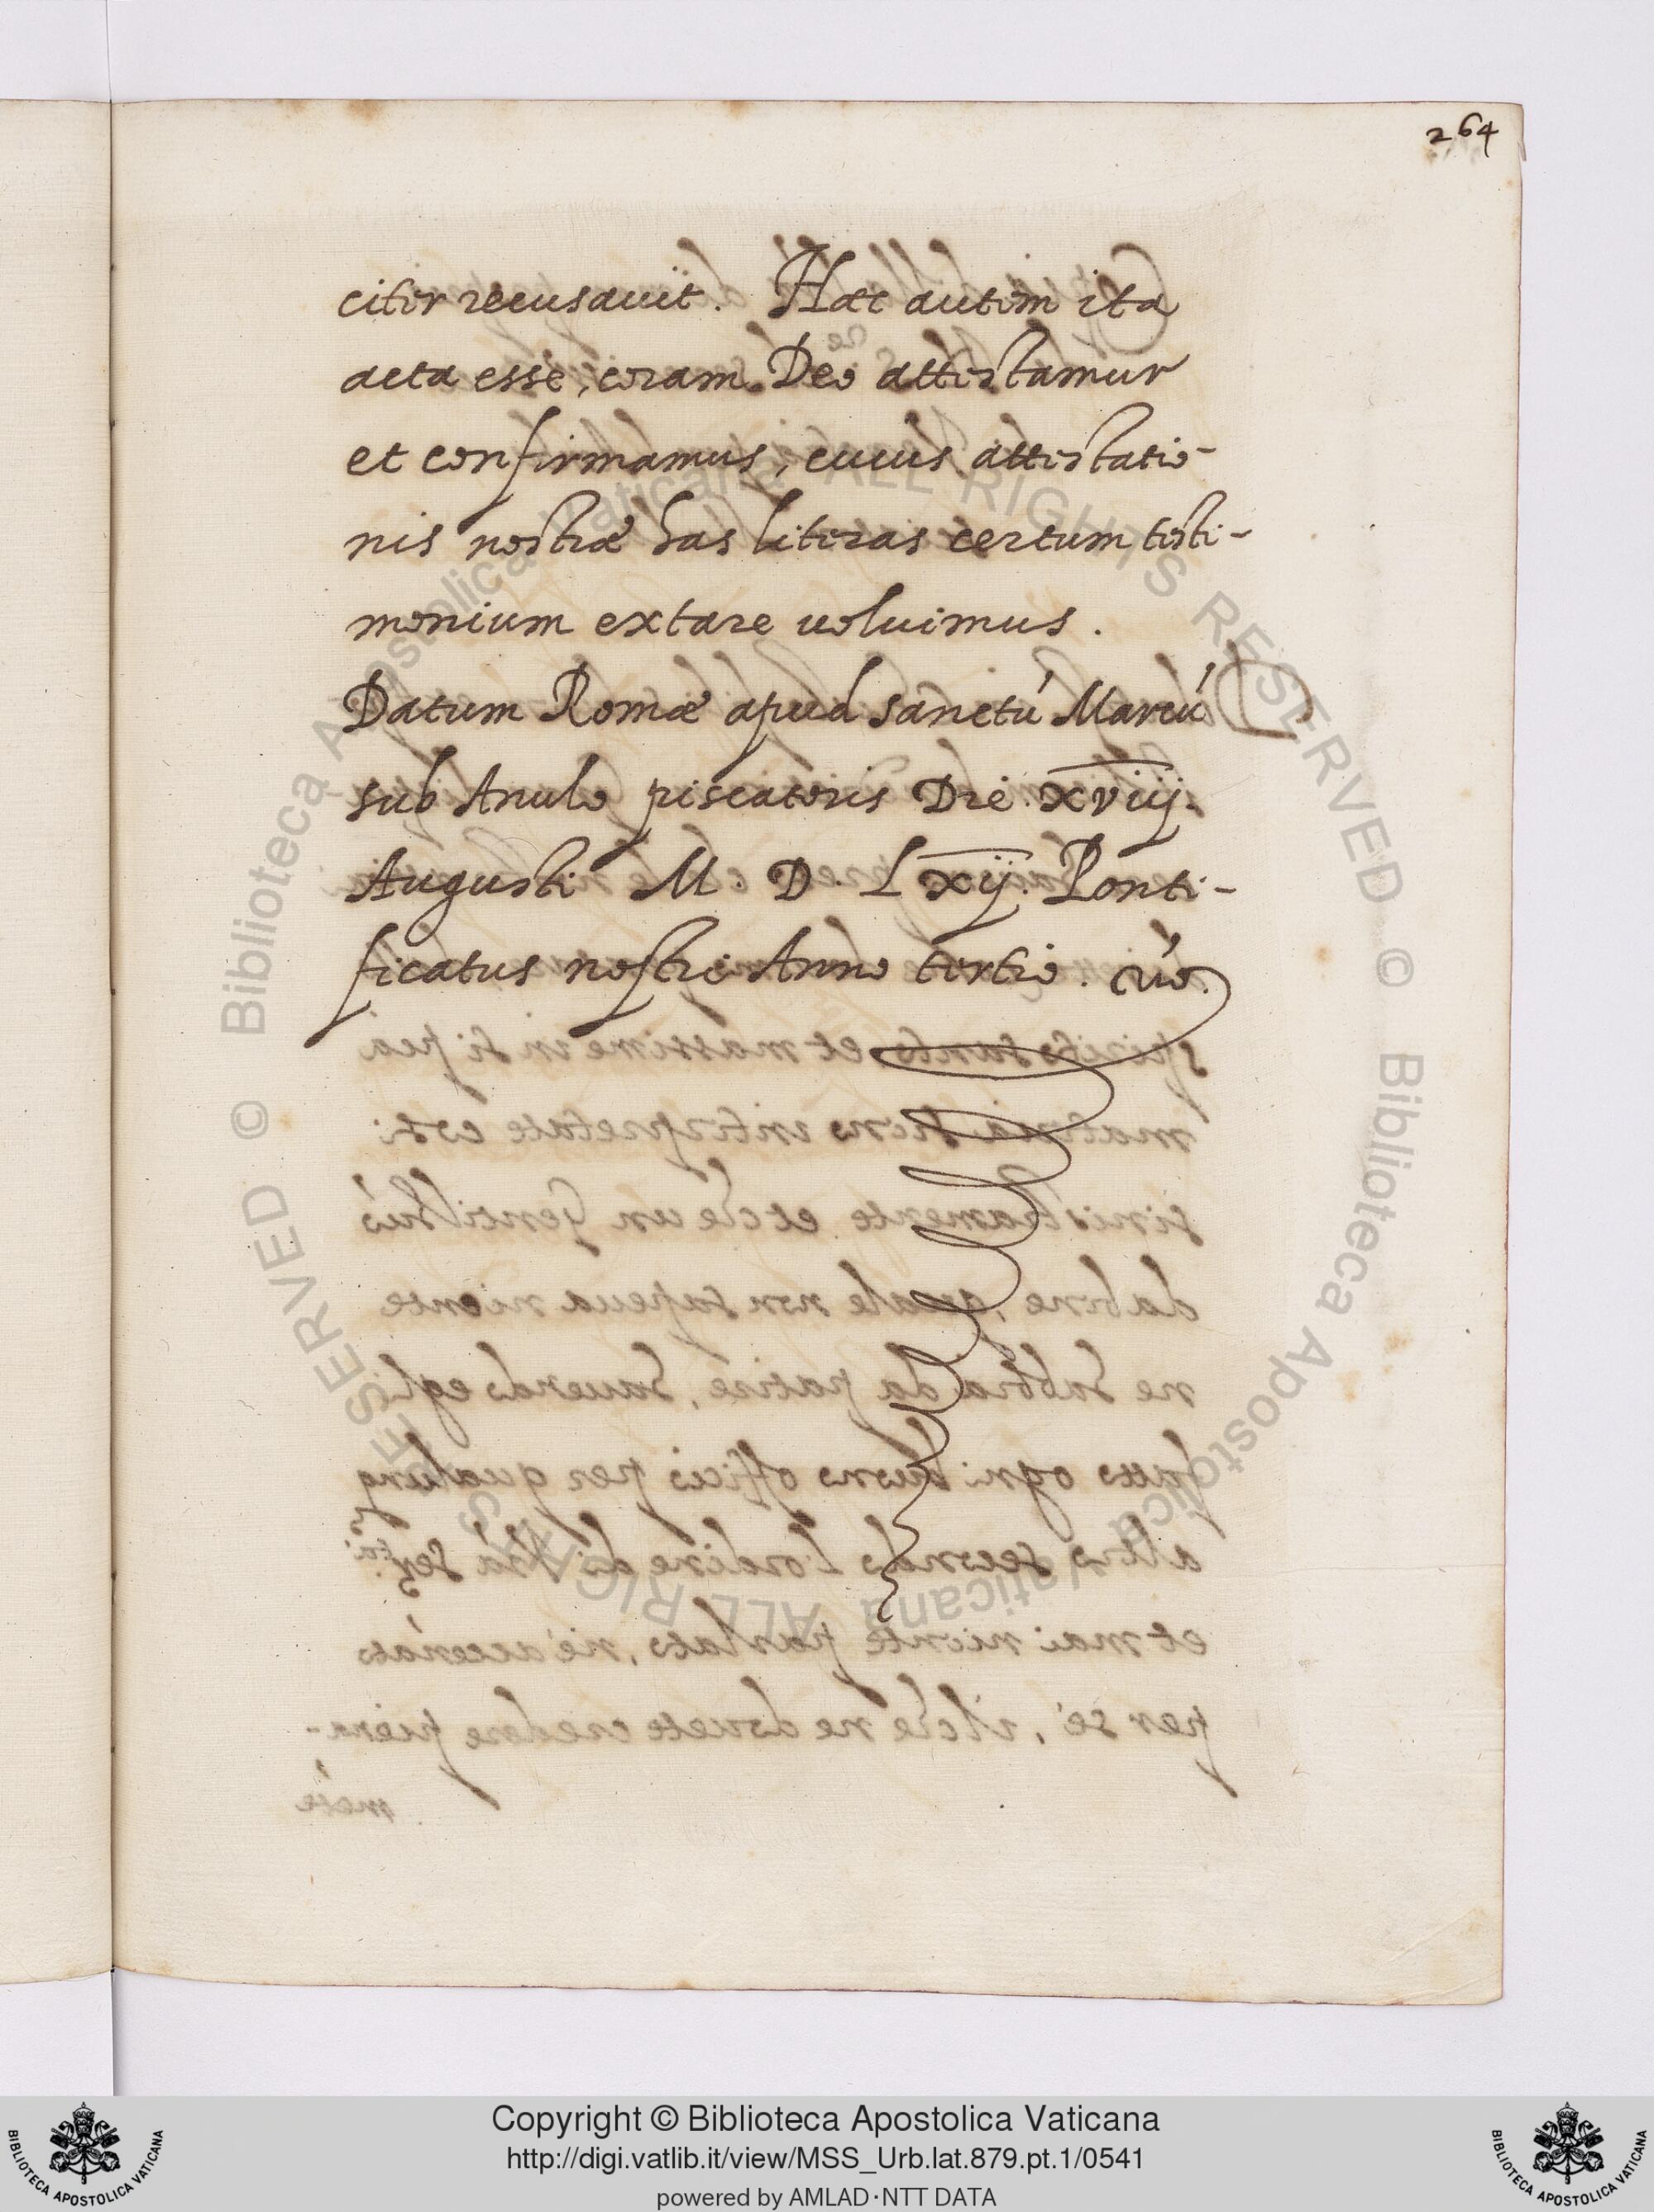 264
citer recusauit. Haec autem ita
acta esse, coram Deo attestamur
et confirmamus, cuius attestatio-
nis nostræ has literas certum testi-
monium extare uoluimus.
Datum Romæ apud sanctũ Marcũ
sub Anulo piscatoris Die XViij.
Augusti M. D. Lxij. Ponti-
ficatus nostri Anno tertio.
© Biblioteca Apostolica Vaticana ALL RIGHTS RESERVED © Biblioteca Apostolica Vaticana ALL RIGHTS RESERVED
Copyright © Biblioteca Apostolica Vaticana
http://digi.vatlib.it/view/MSS_Urb.lat.879.pt.1/0541
powered by AMLAD·NTT DATA
BIBLIOTECA APOSTOLICA VATICANA
BIBLIOTECA APOSTOLICA VATICANA